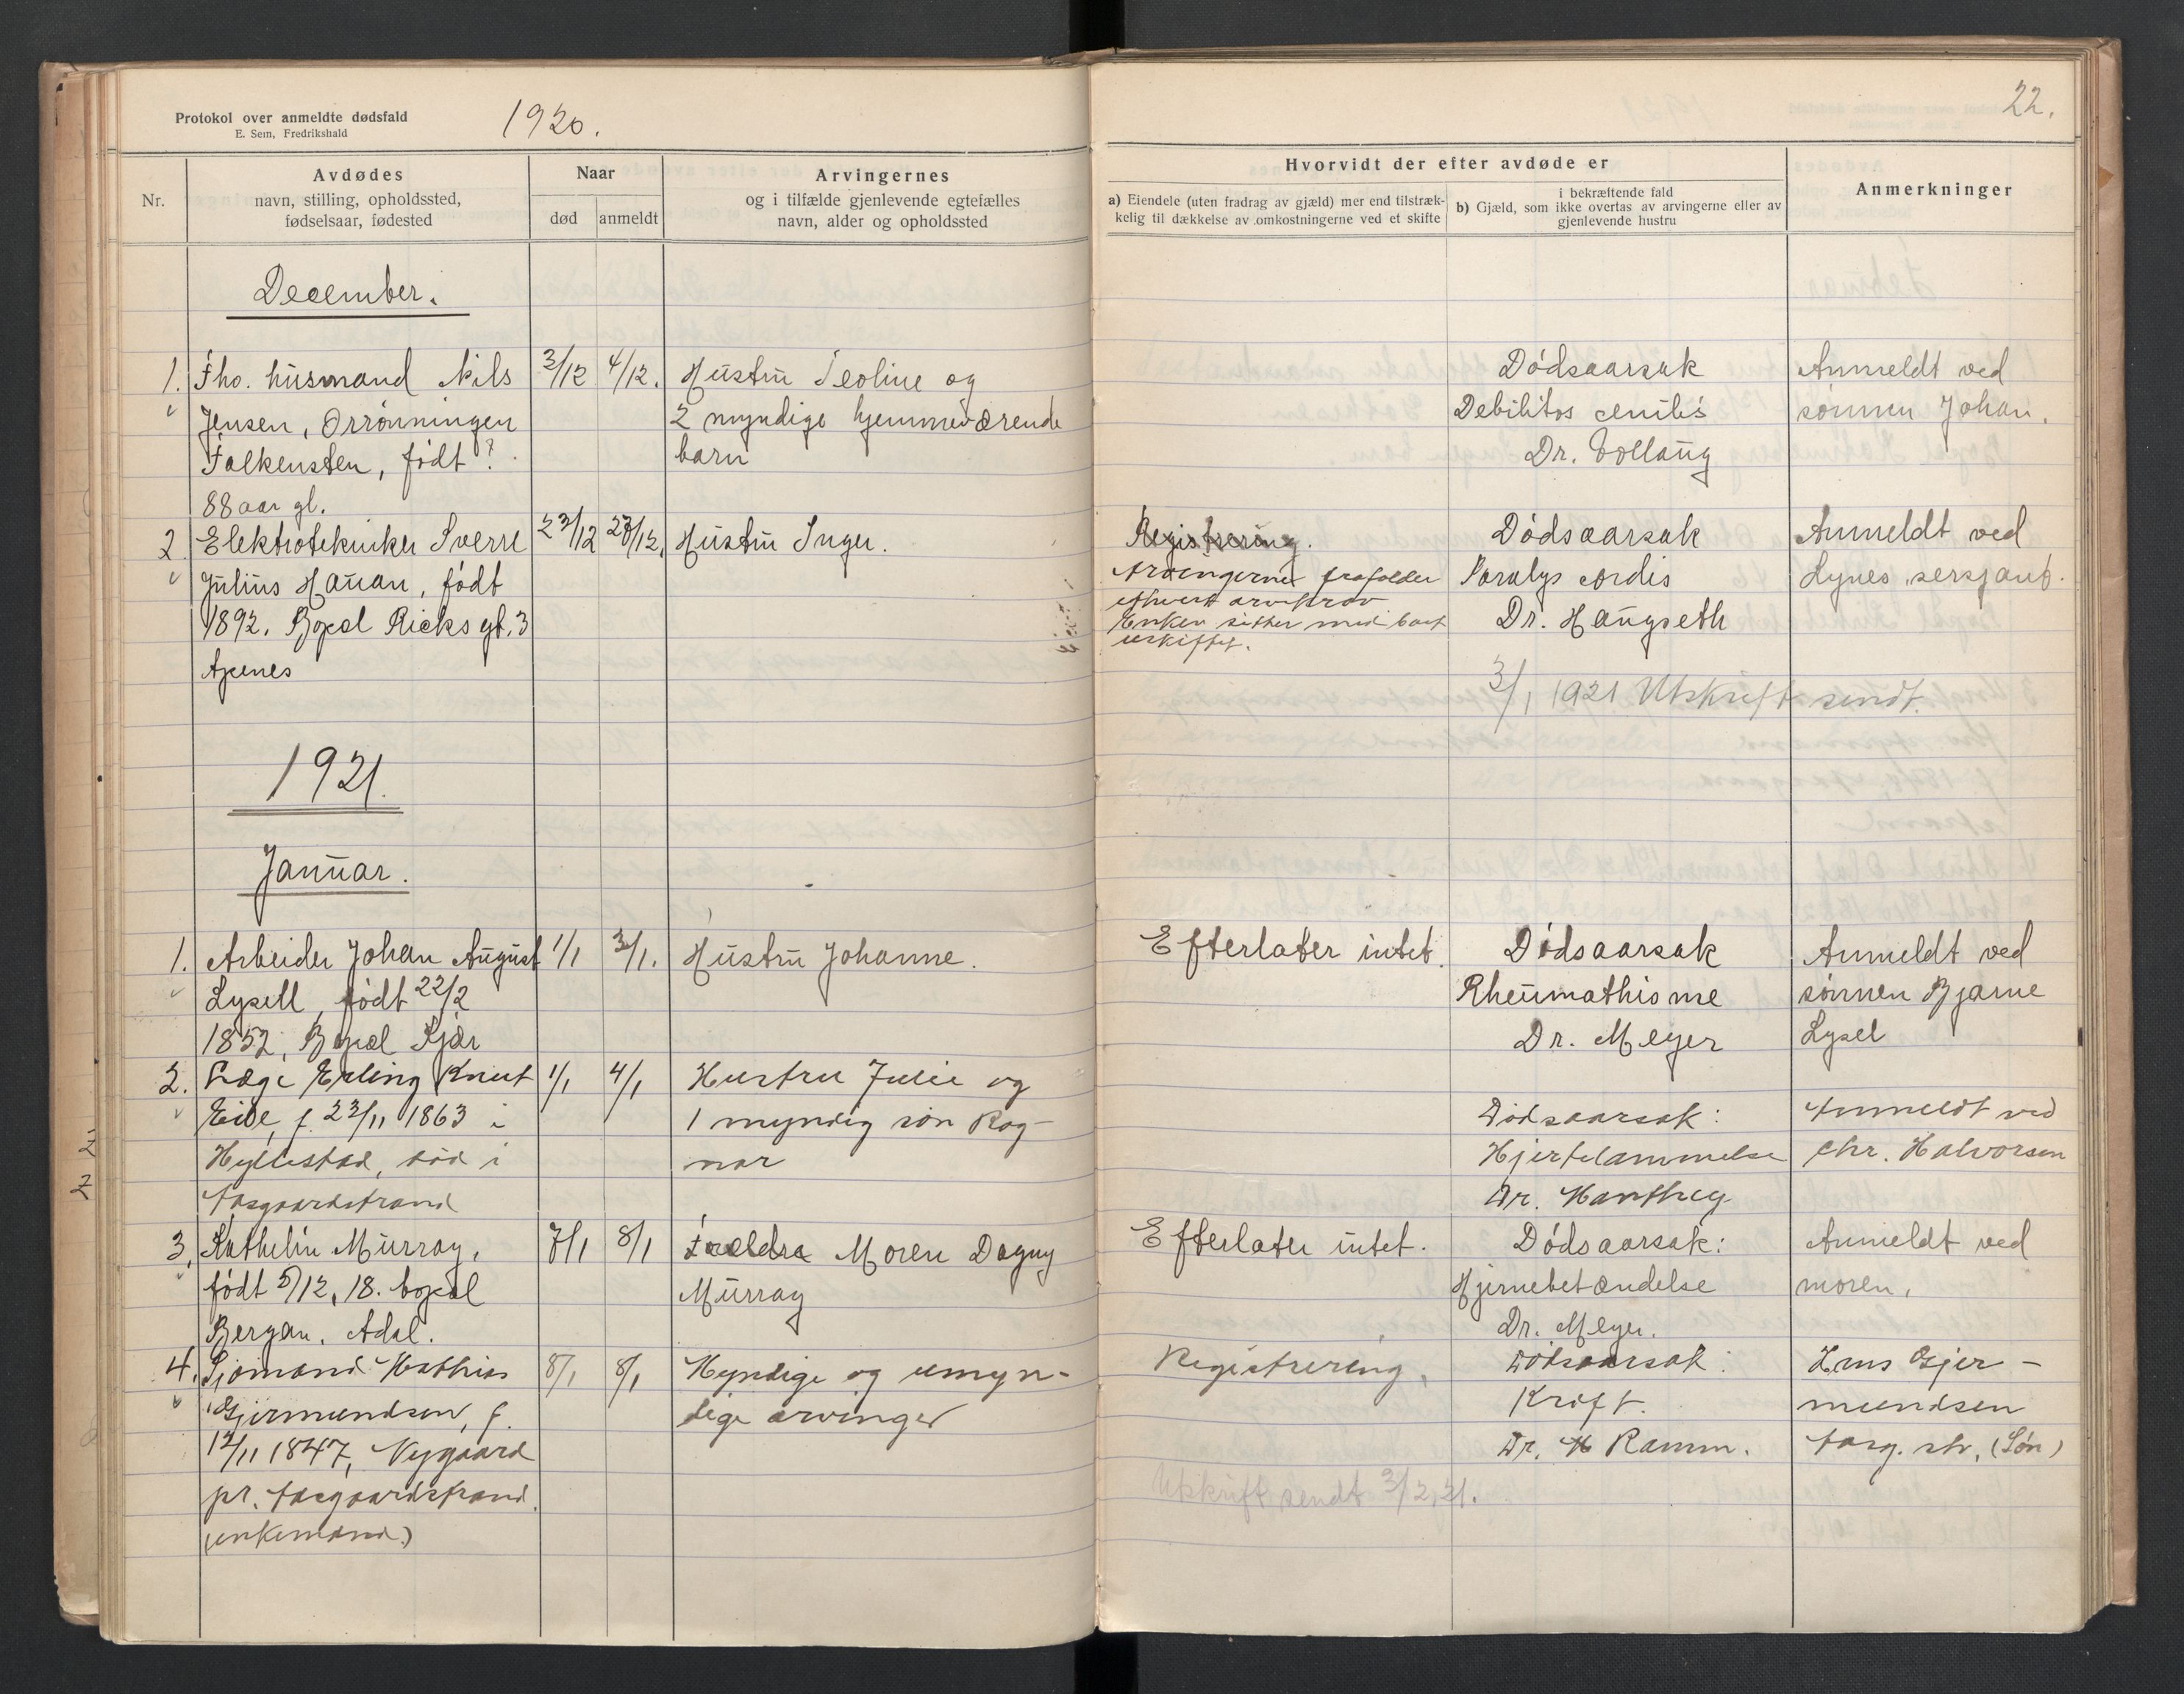 Protokol over anmeldte dødsfald
E. Sem, Fredrikshald
1920.
22.
Nr.
Avdødes
navn, stilling, opholdssted,
fødselsaar, fødested
Naar
død
anmeldt
Arvingernes
og i tilfælde gjenlevende egtefælles
navn, alder og opholdssted
Hvorvidt der efter avdøde er
a) Eiendele (uten fradrag av gjæld) mer end tilstræk-
kelig til dækkelse av omkostningerne ved et skifte
i bekræftende fald
b) Gjæld, som ikke overtas av arvingerne eller av
gjenlevende hustru
Anmerkninger
December.
1. Fho. husmand Nils
Jensen, Orrønningen
Falkensten, født ?
88 aar gl.
3/12 4/12.
Hustru Teoline og
2 myndige hjemmeværende
barn
Dødsaarsak
Debilitos senilis
Dr. Vollaug
Anmeldt ved
sønnen Johan.
2. Elektrotekniker Sverre
Julius Hauan, født
1892. Bopæl Ricks gt. 3
Apenes
23/12 28/12.
Hustru Inger.
Registrering.
Arvingerne frafalder
ethvert arvekrav
Enken sitter med boet
uskiftet.
Dødsaarsak
Paralys cordis
Dr. Haugseth
Anmeldt ved
Lynes, sersjant.
3/1 1921 Utskrift sendt.
1921.
Januar.
1. Arbeider Johan August
Lysell, født 22/2
1852, Bopæl Kjær
1/1 3/1.
Hustru Johanne.
Efterlater intet.
Dødsaarsak
Rheumathisme
Dr. Meyer
Anmeldt ved
sønnen Bjarne
Lysel
2. Læge Erling Knut
Eide, f. 23/11 1863 i
Hyllestad, død i
Aasgaardstrand
1/1 4/1
Hustru Julie og
1 myndig søn Rag-
nar
Dødsaarsak:
Hjertelammelse
Dr. Manthey
Anmeldt ved
Chr. Halvorsen
3. Kathelin Murray,
født 5/12, 18. bopæl
Bergan, Adal.
7/1 8/1
Forældre Moren Dagny
Murray
Efterlater intet.
Dødsaarsak:
Hjernebetændelse
Dr. Meyer.
Anmeldt ved
moren.
4. Sjømand Mathias
Gjermundsen, f.
12/11 1847, Nygaard
pr. Aasgaardstrand.
(enkemand)
8/1 8/1
Myndige og umyn-
dige arvinger
Registrering.
Dødsaarsak:
Kræft.
Dr. H Ramm.
Hans Gjer-
mundsen
Aasg. str. (Søn)
Utskrift sendt 3/2, 21.